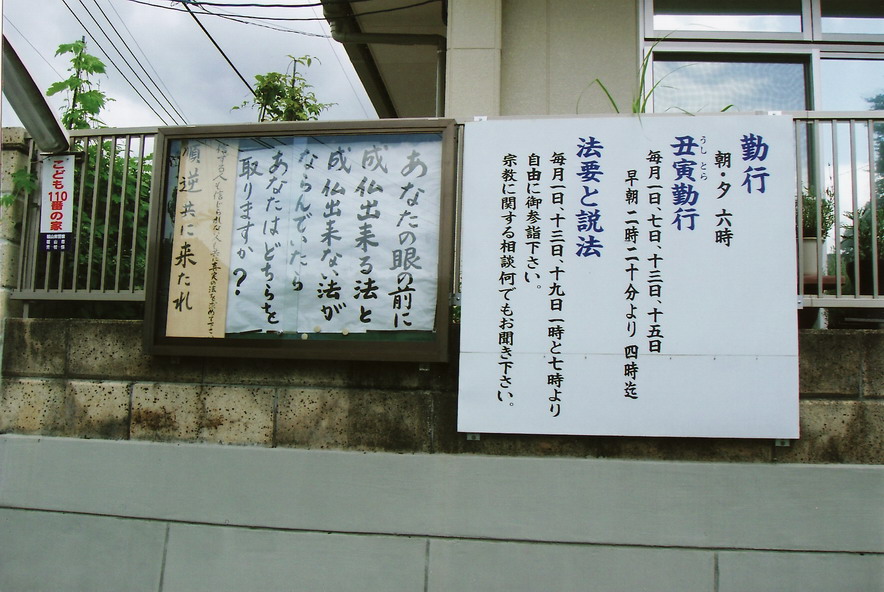 勤行
朝・夕 六時
丑寅勤行
うし とら
毎月一日、七日、十三日、十五日
早朝二時二十分より 四時迄
法要と説法
毎月一日、十三日、十九日 一時と七時より
自由に御参詣下さい。
宗教に関する相談何でもお聞き下さい。
あなたの眼の前に
成仏出来る法と
成仏出来ない法が
ならんでいたら
あなたはどちらを
取りますか?
順逆共に来たれ
こども110番の家